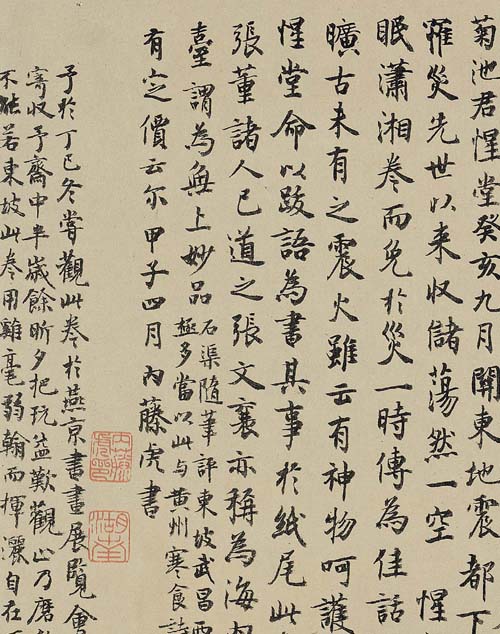 菊池君惺堂癸亥九月關東地震都下
罹災先世以來收儲蕩然一空 惺
眠瀟湘卷而免於災一時傳為佳話
曠古未有之震火雖云有神物呵護
惺堂命以跋語為書其事於紙尾此
張董諸人已道之張文襄亦稱為海
臺謂為無上妙品
石渠隨筆評東坡武昌西
極多當以此與黃州寒食詩
有定價云尔 甲子四月內藤虎書
內藤虎印
湖南
予於丁巳冬嘗觀此卷於燕京書畫展覽會
寄收予齋中半歲餘昕夕把玩益歎觀止乃磨
不能若東坡此卷用雞毫弱翰而揮灑自在